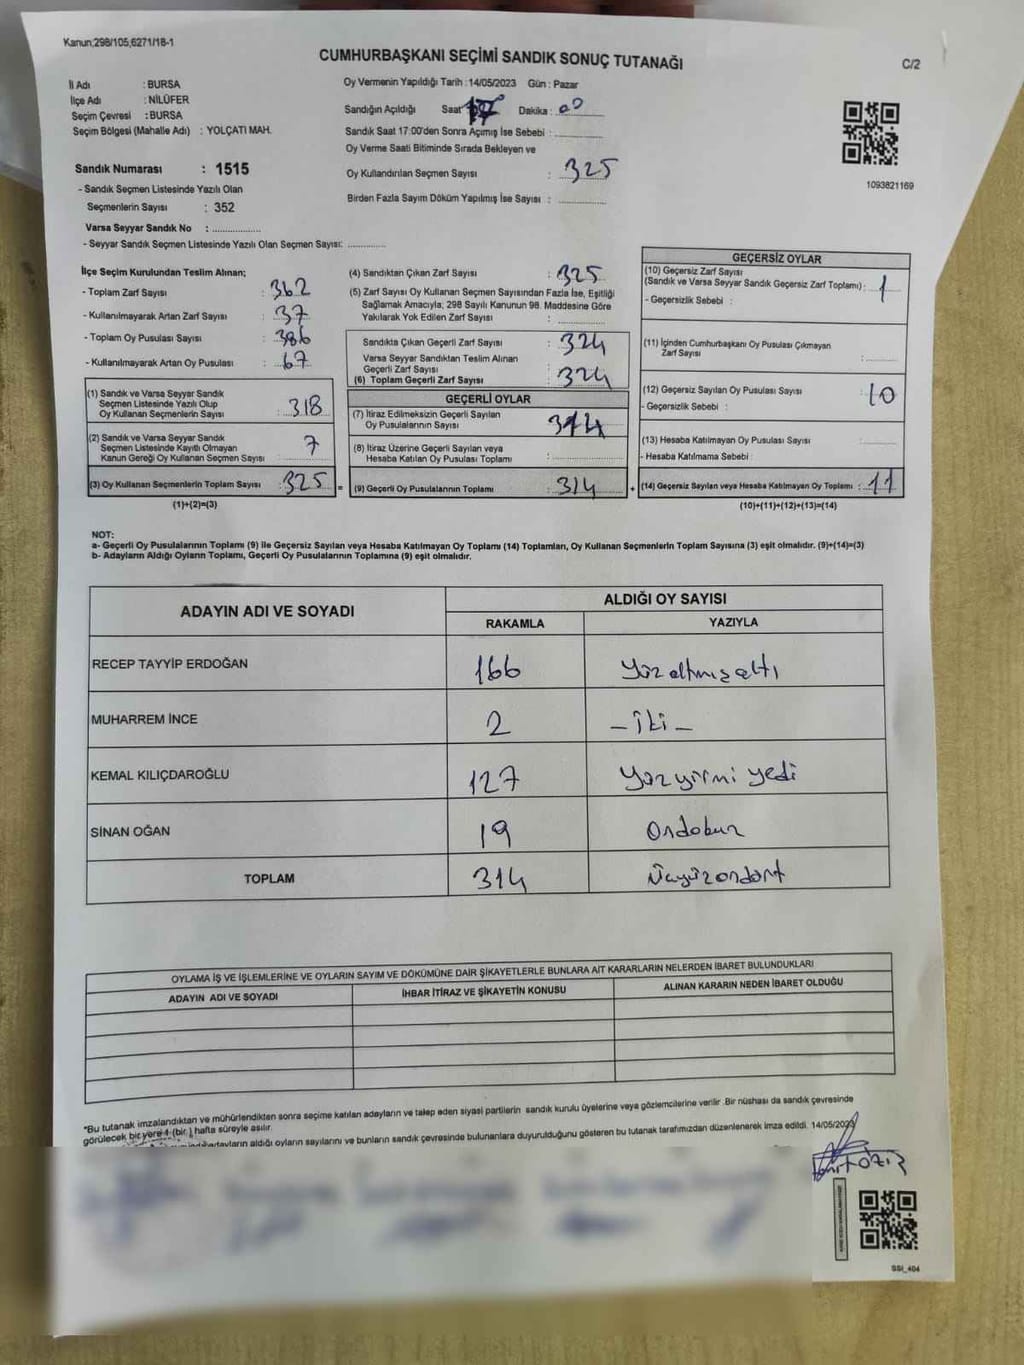 Kanun;298/105,6271/18-1
CUMHURBAŞKANI SEÇİMİ SANDIK SONUÇ TUTANAĞI
C/2
İl Adı : BURSA
İlçe Adı : NİLÜFER
Seçim Çevresi : BURSA
Seçim Bölgesi (Mahalle Adı) : YOLÇATI MAH.
Oy Vermenin Yapıldığı Tarih : 14/05/2023 Gün : Pazar
Sandığın Açıldığı Saat 17 Dakika : 00
Sandık Saat 17:00'den Sonra Açımış İse Sebebi :
Oy Verme Saati Bitiminde Sırada Bekleyen ve
Oy Kullandırılan Seçmen Sayısı : 325
Birden Fazla Sayım Döküm Yapılmış İse Sayısı :
1093821169
Sandık Numarası : 1515
- Sandık Seçmen Listesinde Yazılı Olan
Seçmenlerin Sayısı : 352
Varsa Seyyar Sandık No :
- Seyyar Sandık Seçmen Listesinde Yazılı Olan Seçmen Sayısı:
İlçe Seçim Kurulundan Teslim Alınan;
- Toplam Zarf Sayısı : 362
- Kullanılmayarak Artan Zarf Sayısı : 37
- Toplam Oy Pusulası Sayısı : 386
- Kullanılmayarak Artan Oy Pusulası : 67
(1) Sandık ve Varsa Seyyar Sandık
Seçmen Listesinde Yazılı Olup
Oy Kullanan Seçmenlerin Sayısı : 318
(2) Sandık ve Varsa Seyyar Sandık
Seçmen Listesinde Kayıtlı Olmayan
Kanun Gereği Oy Kullanan Seçmen Sayısı 7
(3) Oy Kullanan Seçmenlerin Toplam Sayısı : 325
(1)+(2)=(3)
(4) Sandıktan Çıkan Zarf Sayısı : 325
(5) Zarf Sayısı Oy Kullanan Seçmen Sayısından Fazla İse, Eşitliği
Sağlamak Amacıyla; 298 Sayılı Kanunun 98. Maddesine Göre
Yakılarak Yok Edilen Zarf Sayısı :
Sandıkta Çıkan Geçerli Zarf Sayısı : 324
Varsa Seyyar Sandıktan Teslim Alınan
Geçerli Zarf Sayısı :
(6) Toplam Geçerli Zarf Sayısı : 324
GEÇERLİ OYLAR
(7) İtiraz Edilmeksizin Geçerli Sayılan
Oy Pusulalarının Sayısı : 314
(8) İtiraz Üzerine Geçerli Sayılan veya
Hesaba Katılan Oy Pusulası Toplamı :
= (9) Geçerli Oy Pusulalarının Toplamı : 314
GEÇERSİZ OYLAR
(10) Geçersiz Zarf Sayısı
(Sandık ve Varsa Seyyar Sandık Geçersiz Zarf Toplamı) : 1
- Geçersizlik Sebebi :
(11) İçinden Cumhurbaşkanı Oy Pusulası Çıkmayan
Zarf Sayısı :
(12) Geçersiz Sayılan Oy Pusulası Sayısı : 10
- Geçersizlik Sebebi :
(13) Hesaba Katılmayan Oy Pusulası Sayısı :
- Hesaba Katılmama Sebebi :
+ (14) Geçersiz Sayılan veya Hesaba Katılmayan Oy Toplamı : 11
(10)+(11)+(12)+(13)=(14)
NOT:
a- Geçerli Oy Pusulalarının Toplamı (9) ile Geçersiz Sayılan veya Hesaba Katılmayan Oy Toplamı (14) Toplamları, Oy Kullanan Seçmenlerin Toplam Sayısına (3) eşit olmalıdır. (9)+(14)=(3)
b- Adayların Aldığı Oyların Toplamı, Geçerli Oy Pusulalarının Toplamına (9) eşit olmalıdır.
ADAYIN ADI VE SOYADI ALDIĞI OY SAYISI
RAKAMLA YAZIYLA
RECEP TAYYİP ERDOĞAN 166 Yüzaltmışaltı
MUHARREM İNCE 2 - İki -
KEMAL KILIÇDAROĞLU 127 Yüzyirmi yedi
SİNAN OĞAN 19 Ondokuz
TOPLAM 314 Üçyüzondört
OYLAMA İŞ VE İŞLEMLERİNE VE OYLARIN SAYIM VE DÖKÜMÜNE DAİR ŞİKAYETLERLE BUNLARA AİT KARARLARIN NELERDEN İBARET BULUNDUKLARI
ADAYIN ADI VE SOYADI İHBAR İTİRAZ VE ŞİKAYETİN KONUSU ALINAN KARARIN NEDEN İBARET OLDUĞU
*Bu tutanak imzalandıktan ve mühürlendikten sonra seçime katılan adayların ve talep eden siyasi partilerin sandık kurulu üyelerine veya gözlemcilerine verilir. Bir nüshası da sandık çevresinde
görülecek bir yere 1 (bir ) hafta süreyle asılır.
adayların aldığı oyların sayılarını ve bunların sandık çevresinde bulunanlara duyurulduğunu gösteren bu tutanak tarafımızdan düzenlenerek imza edildi. 14/05/2023
SSI_404